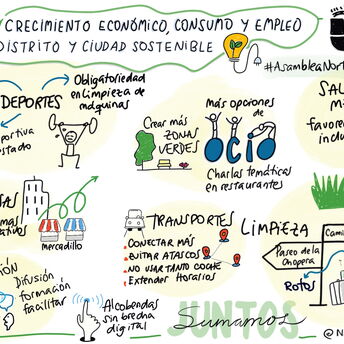 CRECIMIENTO ECONÓMICO, CONSUMO Y EMPLEO
DISTRITO Y CIUDAD SOSTENIBLE
#AsambleaNort
DEPORTES
Obligatoriedad
en limpieza de
máquinas
Crear más
ZONAS
VERDES
más opciones
de
OCIO
Charlas temáticas
en restaurantes
SAL
favore
inclu
Mercadillo
TRANSPORTES
CONECTAR MÁS
EVITAR ATASCOS
NO USAR TANTO COCHE
Extender Horarios
LIMPIEZA
Cami
Paseo de la
Chopera
Rotos
Difusión
formación
facilitar
Alcobendas
sin brecha
digital
JUNTOS
Sumamos
@N